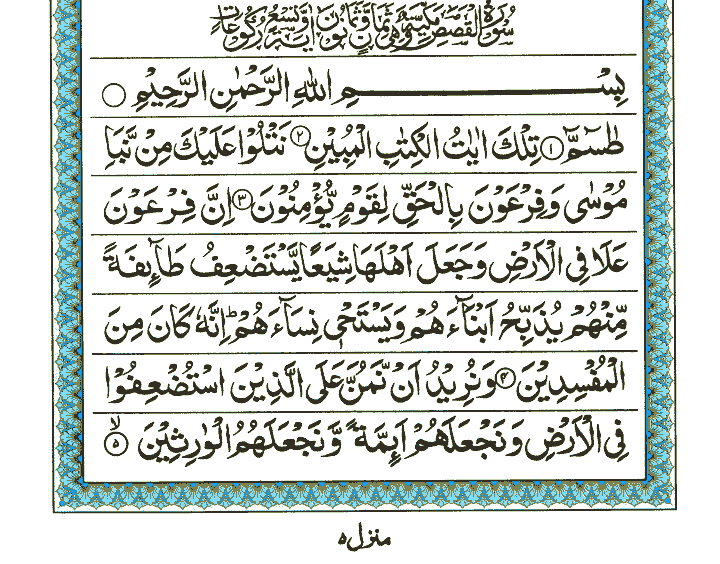 سُوْرَةُ الْقَصَصِ مَكِّيَّةٌ وَّهِيَ ثَمَانٌ وَّثَمَانُوْنَ اٰيَةً وَّتِسْعُ رُكُوْعَاتٍ
بِسْمِ اللّٰهِ الرَّحْمٰنِ الرَّحِيْمِ
طٰسٓمّٓ ۝۱ تِلْكَ اٰيٰتُ الْكِتٰبِ الْمُبِيْنِ ۝۲ نَتْلُوْا عَلَيْكَ مِنْ نَّبَاِ
مُوْسٰى وَفِرْعَوْنَ بِالْحَقِّ لِقَوْمٍ يُّؤْمِنُوْنَ ۝۳ اِنَّ فِرْعَوْنَ
عَلَا فِى الْاَرْضِ وَجَعَلَ اَهْلَهَا شِيَعًا يَّسْتَضْعِفُ طَآئِفَةً
مِّنْهُمْ يُذَبِّحُ اَبْنَآءَهُمْ وَيَسْتَحْىٖ نِسَآءَهُمْ ؕ اِنَّهٗ كَانَ مِنَ
الْمُفْسِدِيْنَ ۝۴ وَنُرِيْدُ اَنْ نَّمُنَّ عَلَى الَّذِيْنَ اسْتُضْعِفُوْا
فِى الْاَرْضِ وَنَجْعَلَهُمْ اَئِمَّةً وَّنَجْعَلَهُمُ الْوٰرِثِيْنَ ۙ ۝۵
منزل ۵